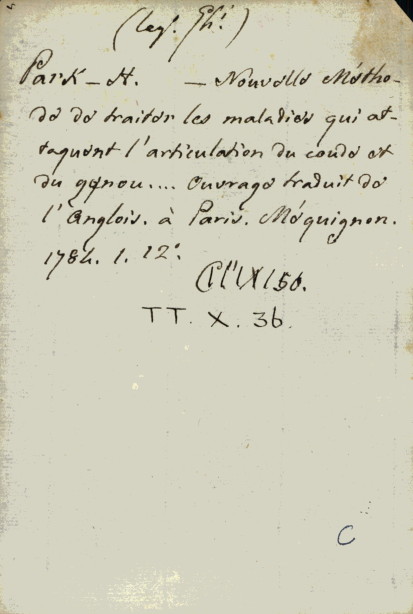 (leg. Gh!)
Park - H. - Nouvelle Métho-
de de traiter les maladies qui at-
taquent l'articulation du coude et
du genou.... Ouvrage traduit de
l'Anglois. à Paris. Méquignon.
1784. 1. 12°.
TT. X. 36.
C